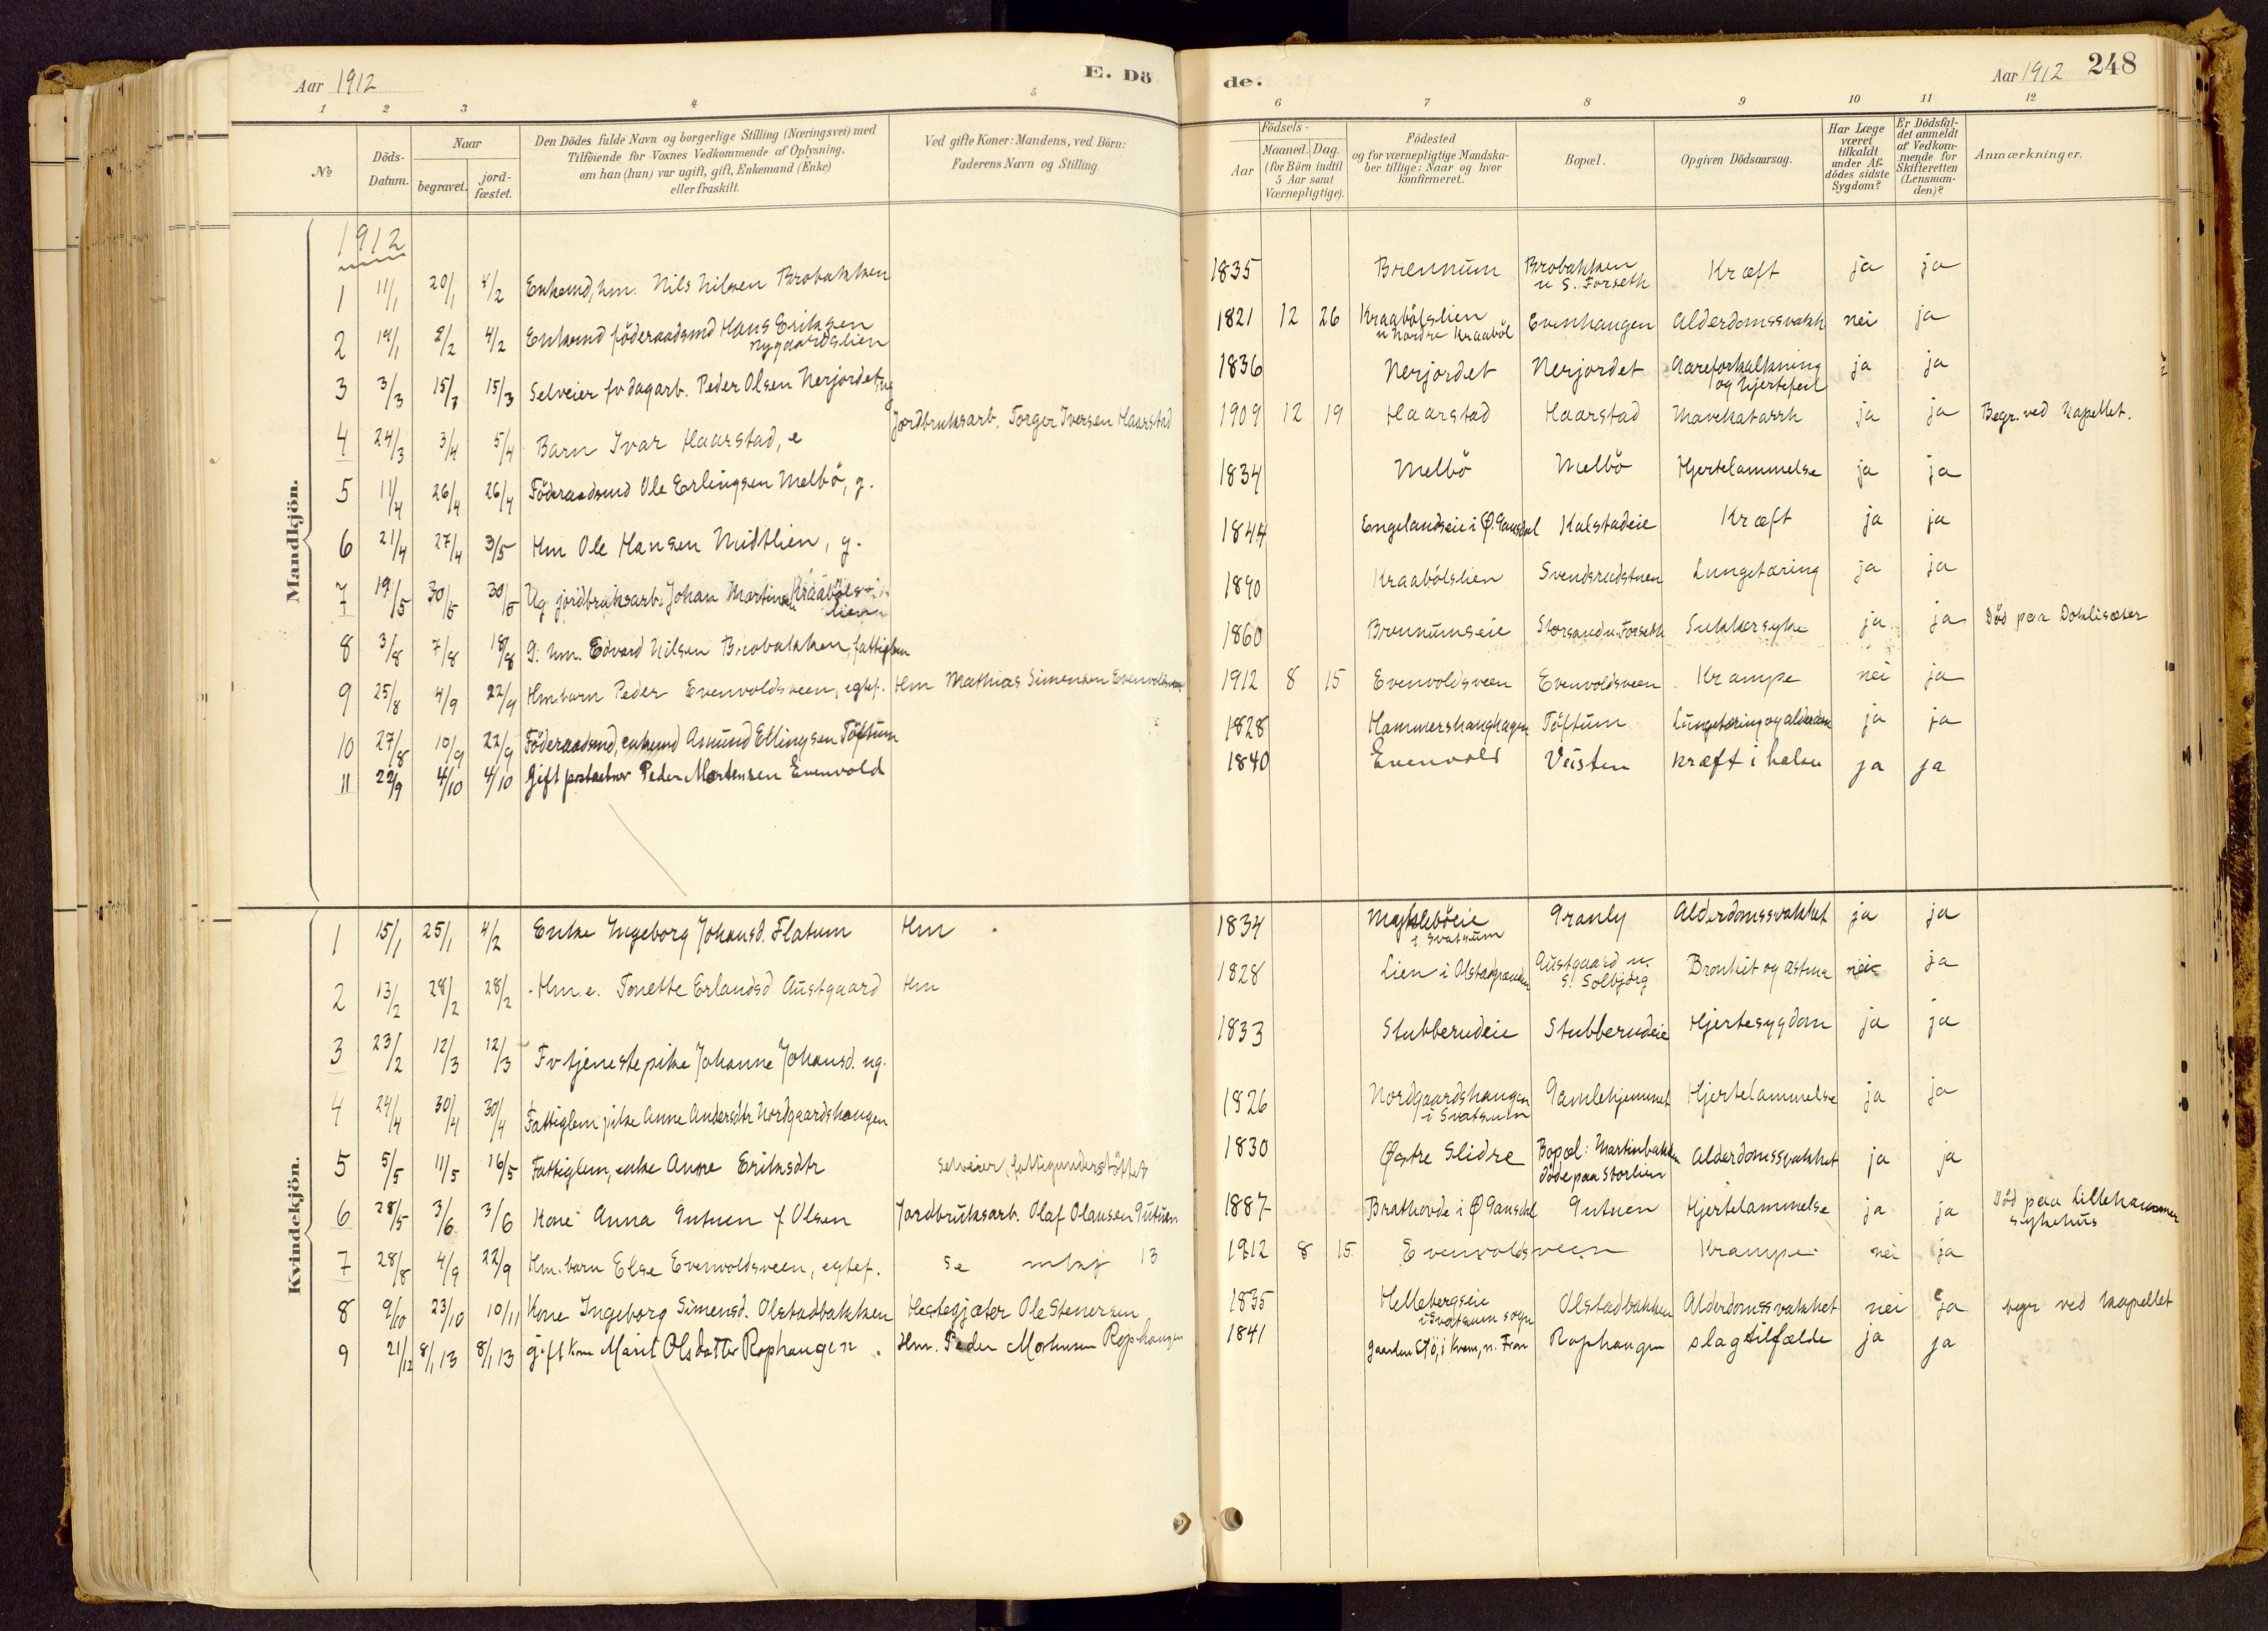 Aar 1912
E. Dö
de.
Aar 1912 248
1 2 3 4 5 6 7 8 9 10 11 12
No
Döds-Datum.
Naar
begravet.
jord-fæstet.
Den Dödes fulde Navn og borgerlige Stilling (Næringsvei) med
Tilföiende for Voxnes Vedkommende af Oplysning,
om han (hun) var ugift, gift, Enkemand (Enke)
eller fraskilt.
Ved gifte Koner: Mandens, ved Börn:
Faderens Navn og Stilling.
Födsels-
Aar
Maaned. Dag.
(for Börn indtil
5 Aar samt
Værnepligtige).
Födested
og for værnepligtige Mandska-
ber tillige: Naar og hvor
konfirmeret.
Bopæl.
Opgiven Dödsaarsag.
Har Læge
været
tilkaldt
under Af-
dödes sidste
Sygdom?
Er Dödsfal-
det anmeldt
af Vedkom-
mende for
Skifteretten
(Lensman-
den)?
Anmærkninger.
Mandkjön.
1912
1 11/1 20/1 4/2 Enkemd, hm. Nils Nilsen Brobakken 1835 Brennum Brobakken u S. Forseth Kræft ja ja
2 19/1 2/2 4/2 Enkemd föderaadsmd Hans Eriksen Nygaardslien 1821 12 26 Kraabölslien u Nordre Kraaböl Evenhaugen Alderdomssvakh nei ja
3 3/3 15/3 15/3 Selveier fv dagarb. Peder Olsen Nerjordet, ug 1836 Nerjordet Nerjordet Aareforkalkning og hjertefeil ja ja
4 24/3 3/4 5/4 Barn Ivar Haarstad, e Jordbruksarb. Torger Iversen Haarstad 1909 12 19 Haarstad Haarstad Mavekatarrh ja ja Begr. ved Kapellet.
5 11/4 26/4 26/4 Föderaadsmd Ole Erlingsen Melbö, g. 1834 Melbö Melbö Hjertelammelse ja ja
6 21/4 27/4 3/5 Hm Ole Hansen Midtlien, g. 1844 Engelandseie i Ø. Gausdal Kalstadeie Kræft ja ja
7 19/5 30/5 30/5 Ug jordbruksarb. Johan Martinsen Kraabölslien 1890 Kraabölslien Svendsrudstuen Lungetæring ja ja
8 3/8 7/8 18/8 G. hm. Edvard Nilsen Brobakken, fattiglem 1860 Brennumseie Storsand u. Forseth Sukkersyke ja ja Död paa Doklisæter
9 25/8 4/9 22/9 Hm.barn Peder Evenvoldsveen, egtef. Hm Mathias Simensen Evenvoldsveen 1912 8 15 Evenvoldsveen Evenvoldsveen Krampe nei ja
10 27/8 10/9 22/9 Föderaadsmd, enkemd Amund Ellingsen Töftum 1828 Hammershaughagen Töftum Lungetæring og alderdom ja ja
11 22/9 4/10 4/10 Gift Peder Mortensen Evenvold 1840 Evenvold Veisten kræft i halsen ja ja
Kvindekjön.
1 15/1 25/1 4/2 Enke Ingeborg Johansd. Flatum Hm 1834 i Svatsum Granly Alderdomssvakhet ja ja
2 13/2 28/2 28/2 Hm.e. Tonette Erlandsd Austgaard Hm 1828 Lien i Olstadgrænden Austgaard u. S. Solbjörg Bronkit og astma nei ja
3 23/2 12/3 12/3 Fv tjenestepike Johanne Johansd. ug. 1833 Stubberudeie Stubberudeie Hjertesygdom ja ja
4 24/4 30/4 30/4 Fattiglem pike Anne Andersdtr Nordgaardshaugen 1826 Nordgaardshaugen i Svatsum Gamlehjemmet Hjertelammelse ja ja
5 5/5 11/5 16/5 Fattiglem, enke Anne Eriksdtr selveier, fattigunderstöttet 1830 Østre Slidre Bopæl: Martinbakken döde paa Storlien Alderdomssvakhet ja ja
6 28/5 3/6 3/6 Kone Anna Gutuen f. Olsen Jordbruksarb. Olaf Olausen Gutuen 1887 Brathovde i Ø Gausdal Gutuen Hjertelammelse ja ja Död paa Lillehammer sykehus
7 28/8 4/9 22/9 Hm.barn Else Evenvoldsveen, egtef. Se mkj 13 1912 8 15 Evenvoldsveen Krampe nei ja
8 9/10 23/10 10/11 Kone Ingeborg Simensd. Olstadbakken Hestegjæter Ole Stenersen 1835 Hellebergseie i Svatsum sogn Olstadbakken Alderdomssvakhet nei ja begr ved kapellet
9 21/12 8/1 13 8/1 13 gift kone Marit Olsdatter Rophaugen. Hm. Peder Mortensen Rophaugen 1841 gaarden Stö, i Kvam, n. Fron Rophaugen slagtilfælde ja ja